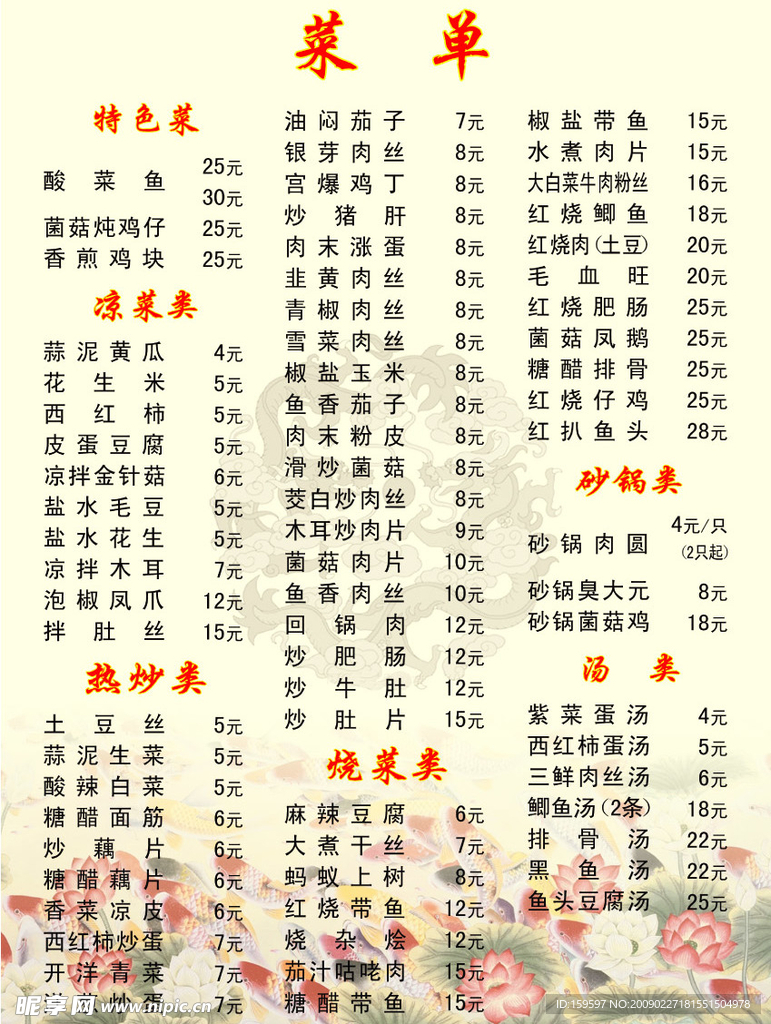 菜 单
特色菜
酸菜鱼 25元
30元
菌菇炖鸡仔 25元
香煎鸡块 25元
凉菜类
蒜泥黄瓜 4元
花生米 5元
西红柿 5元
皮蛋豆腐 5元
凉拌金针菇 6元
盐水毛豆 5元
盐水花生 5元
凉拌木耳 7元
泡椒凤爪 12元
拌肚丝 15元
热炒类
土豆丝 5元
蒜泥生菜 5元
酸辣白菜 5元
糖醋面筋 6元
炒藕片 6元
糖醋藕片 6元
香菜凉皮 6元
西红柿炒蛋 7元
开洋青菜 7元
炒蛋 7元
油闷茄子 7元
银芽肉丝 8元
宫爆鸡丁 8元
炒猪肝 8元
肉末涨蛋 8元
韭黄肉丝 8元
青椒肉丝 8元
雪菜肉丝 8元
椒盐玉米 8元
鱼香茄子 8元
肉末粉皮 8元
滑炒菌菇 8元
茭白炒肉丝 8元
木耳炒肉片 9元
菌菇肉片 10元
鱼香肉丝 10元
回锅肉 12元
炒肥肠 12元
炒牛肚 12元
炒肚片 15元
烧菜类
麻辣豆腐 6元
大煮干丝 7元
蚂蚁上树 8元
红烧带鱼 12元
烧杂烩 12元
茄汁咕咾肉 15元
糖醋带鱼 15元
椒盐带鱼 15元
水煮肉片 15元
大白菜牛肉粉丝 16元
红烧鲫鱼 18元
红烧肉(土豆) 20元
毛血旺 20元
红烧肥肠 25元
菌菇凤鹅 25元
糖醋排骨 25元
红烧仔鸡 25元
红扒鱼头 28元
砂锅类
砂锅肉圆 4元/只
(2只起)
砂锅臭大元 8元
砂锅菌菇鸡 18元
汤 类
紫菜蛋汤 4元
西红柿蛋汤 5元
三鲜肉丝汤 6元
鲫鱼汤(2条) 18元
排骨汤 22元
黑鱼汤 22元
鱼头豆腐汤 25元
昵享网 www.nipic.cn
ID:159597 NO:20090227181551504978